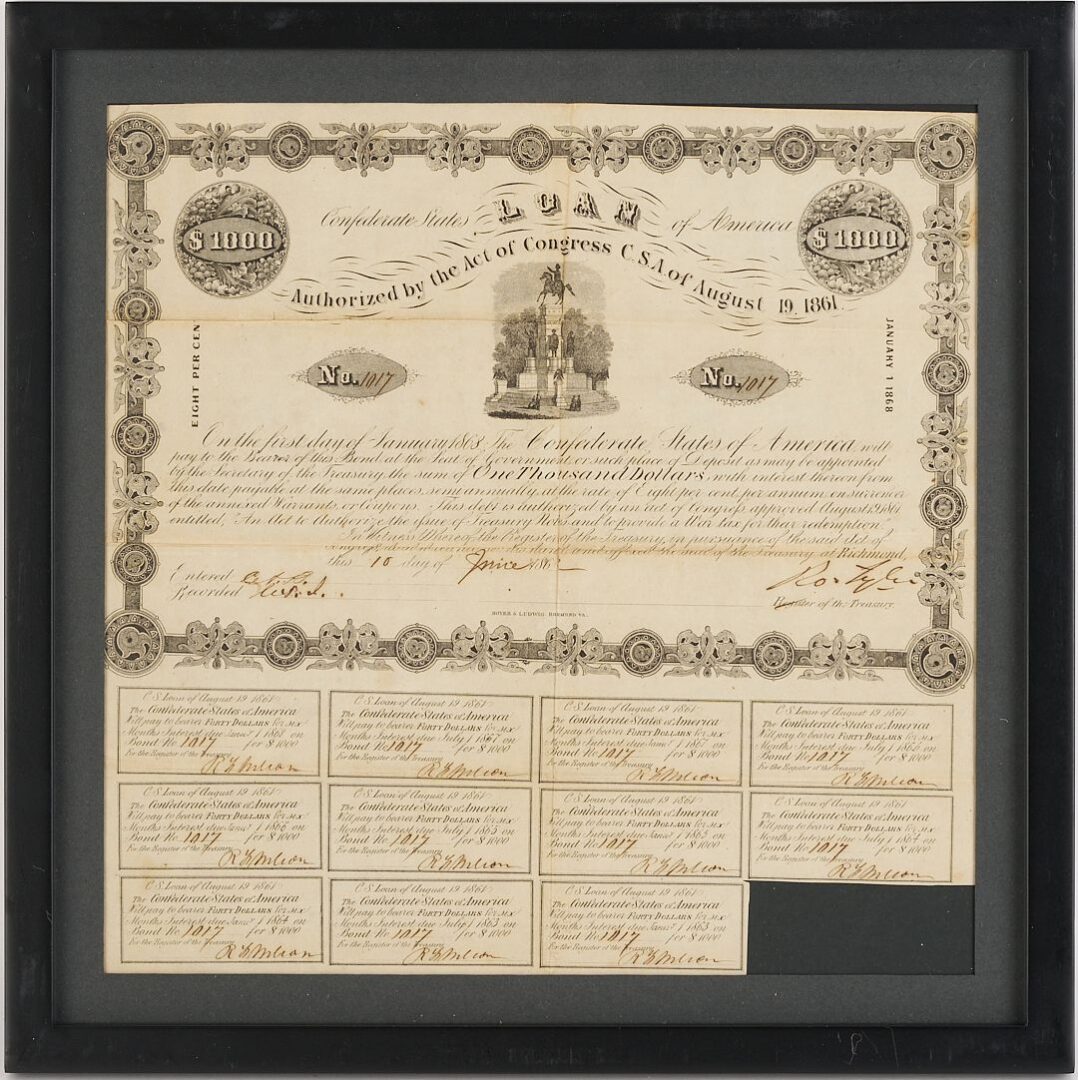 Confederate States LOAN of America
$1000
$1000
Authorized by the Act of Congress C.S.A. of August 19, 1861.
EIGHT PER CEN
JANUARY 1 1868
No. 1017
No. 1017
On the first day of January 1868 The Confederate States of America will
pay to the Bearer of this Bond, at the Seat of Government, or such place of Deposit as may be appointed
by the Secretary of the Treasury, the sum of One Thousand Dollars, with interest thereon from
this date payable at the same places, semi annually, at the rate of Eight per cent. per annum, on surrender
of the annexed Warrants, or Coupons. This debt is authorized by an act of Congress approved August 19, 1861
entitled, "An Act to Authorize the issue of Treasury Notes and to provide a War tax for their redemption."
In Witness Whereof, the Register of the Treasury, in pursuance of the said Act of
the seal of the Treasury at Richmond,
this 10 day of June 1862
Entered
Recorded
Ro. Tyler
Register of the Treasury
HOYER & LUDWIG. RICHMOND VA.
C.S. Loan of August 19 1861
The Confederate States of America
Will pay to bearer FORTY DOLLARS for six
Months Interest due Jany. 1 1868 on
Bond No 1017 for $1000
For the Register of the Treasury
C.S. Loan of August 19 1861
The Confederate States of America
Will pay to bearer FORTY DOLLARS for six
Months Interest due July 1 1867 on
Bond No 1017 for $1000
For the Register of the Treasury
C.S. Loan of August 19 1861
The Confederate States of America
Will pay to bearer FORTY DOLLARS for six
Months Interest due Jany. 1 1867 on
Bond No 1017 for $1000
For the Register of the Treasury
C.S. Loan of August 19 1861
The Confederate States of America
Will pay to bearer FORTY DOLLARS for six
Months Interest due July 1 1866 on
Bond No 1017 for $1000
For the Register of the Treasury
C.S. Loan of August 19 1861
The Confederate States of America
Will pay to bearer FORTY DOLLARS for six
Months Interest due Jany. 1 1866 on
Bond No 1017 for $1000
For the Register of the Treasury
C.S. Loan of August 19 1861
The Confederate States of America
Will pay to bearer FORTY DOLLARS for six
Months Interest due July 1 1865 on
Bond No 1017 for $1000
For the Register of the Treasury
C.S. Loan of August 19 1861
The Confederate States of America
Will pay to bearer FORTY DOLLARS for six
Months Interest due Jany. 1 1865 on
Bond No 1017 for $1000
For the Register of the Treasury
C.S. Loan of August 19 1861
The Confederate States of America
Will pay to bearer FORTY DOLLARS for six
Months Interest due July 1 1864 on
Bond No 1017 for $1000
For the Register of the Treasury
C.S. Loan of August 19 1861
The Confederate States of America
Will pay to bearer FORTY DOLLARS for six
Months Interest due Jany. 1 1864 on
Bond No 1017 for $1000
For the Register of the Treasury
C.S. Loan of August 19 1861
The Confederate States of America
Will pay to bearer FORTY DOLLARS for six
Months Interest due July 1 1863 on
Bond No 1017 for $1000
For the Register of the Treasury
C.S. Loan of August 19 1861
The Confederate States of America
Will pay to bearer FORTY DOLLARS for six
Months Interest due Jany. 1 1863 on
Bond No 1017 for $1000
For the Register of the Treasury